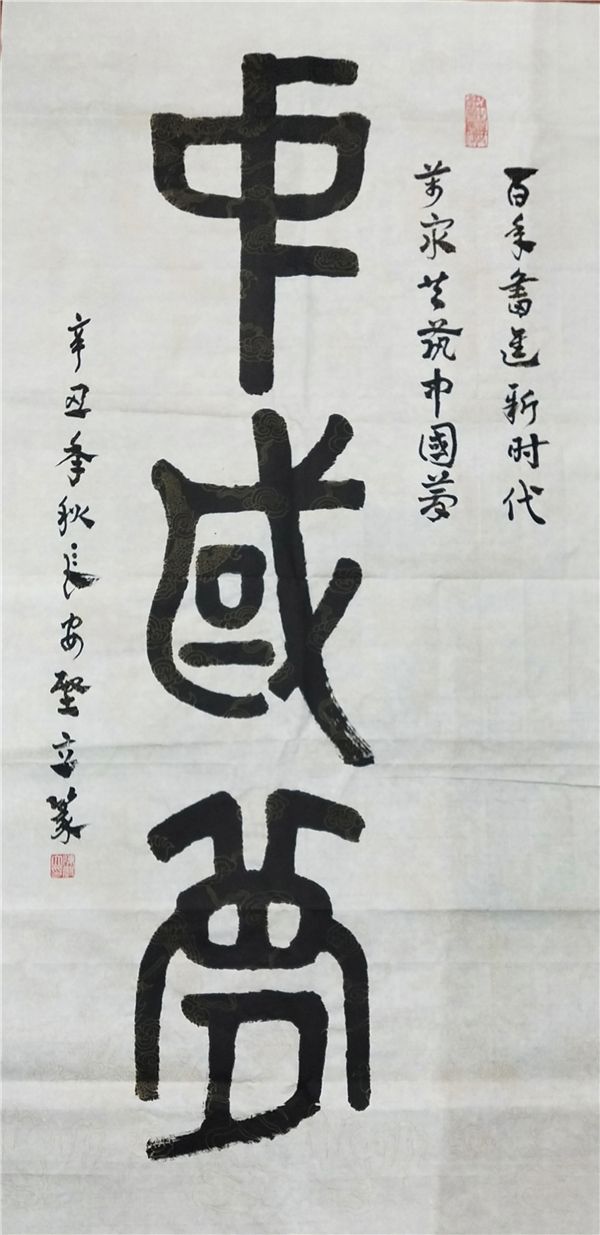 百年奮進新时代
萬家共筑中國夢
中國夢
辛丑季秋長安堅立篆